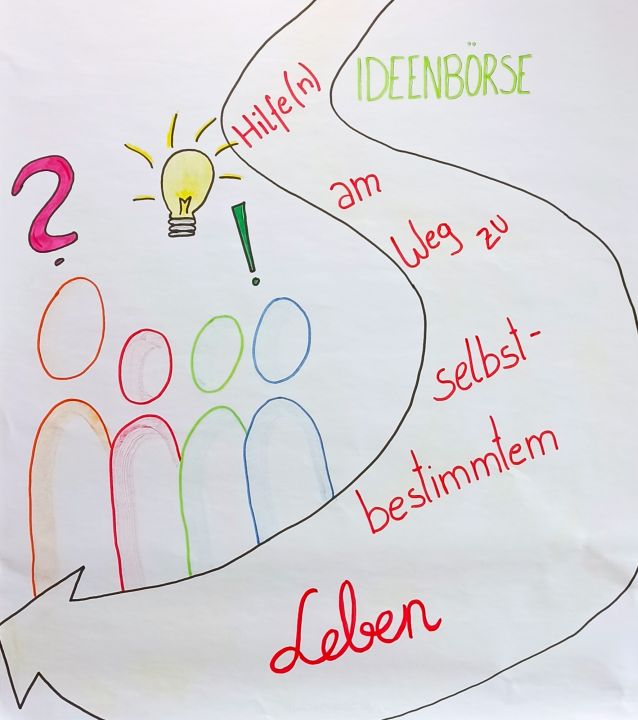 IDEENBÖRSE
Hilfe(n)
am
Weg zu
selbst-
bestimmtem
Leben
? !